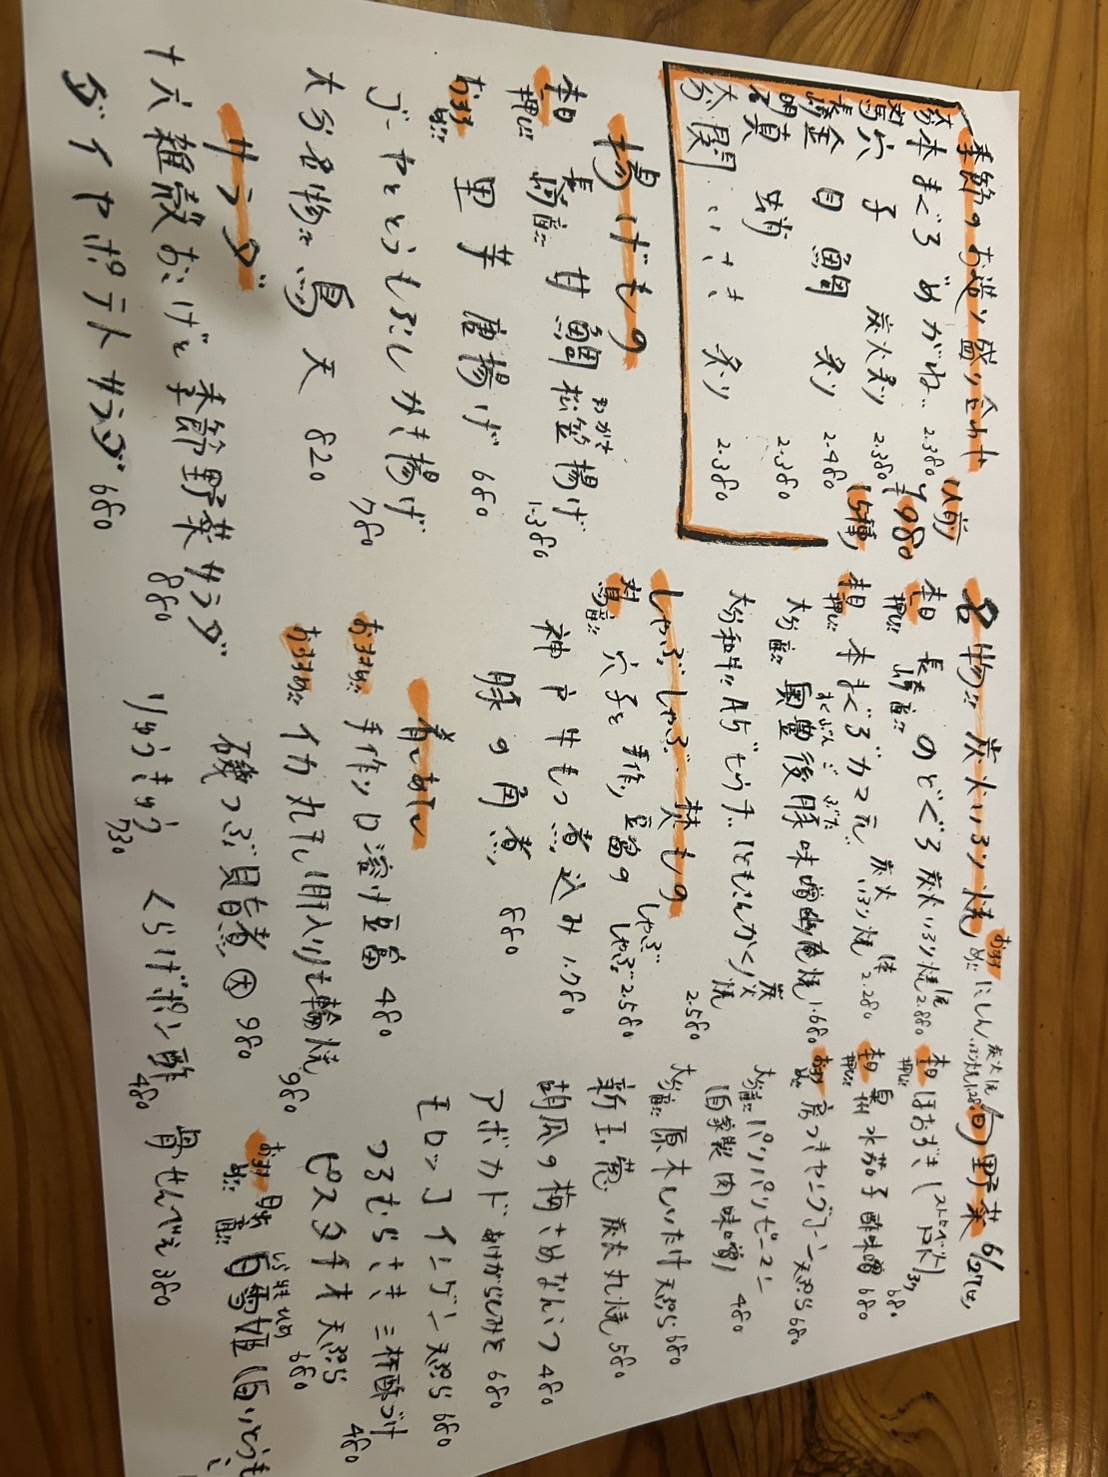 季節のお造り盛り合わせ 1人前 ¥980 (5種)
本まぐろ めがね 2.380
対馬 穴子 炭火炙り 2.380
長崎 金目鯛 炙り 2.480
明石 真蛸 2.380
大分 関 さ 炙り 2.380
揚げもの
本日押し!! 長崎産!! 甘鯛 松笠揚げ 1.380
おすすめ!! 里芋唐揚げ 680
ゴーヤととうもろこしかき揚げ 780
大分名物!! 鳥天 820
サラダ
十六雑穀おこげと季節野菜サラダ 880
ダイヤポテトサラダ 680
名物!! 炭火いぶり焼
おすすめ!! にしん 炭火いぶり焼
本日押し!! 長崎産!! のどぐろ炭火いぶり焼 2.880
本日押し!! 本まぐろカマ元 炭火いぶり焼 2.280
大分産!! 奥豊後豚 味噌幽庵焼 1.680
大分和牛!! A5 もうすこ とも さんかく 炭火焼 2.580
しゃぶしゃぶ、焚もの
対馬産!! 穴子と手作り豆富のしゃぶしゃぶ 2.580
神戸牛もつ煮込み 1.780
豚の角煮 880
肴 あて
おすすめ!! 手作り口溶け豆富 480
おすすめ!! イカ丸干し肝入り 七輪焼 980
磯つぶ貝旨煮 大 980
りゅうきゅう 730
くらげポン酢 480
骨せんべえ 380
旬野菜 6/27
本日押し!! ほおずき (ストロベリートマト) 680
本日押し!! 泉州水茄子酢味噌 680
おすすめ!! 房つきヤングコーン天ぷら 680
大分産!! パリパリピーマン 自家製肉味噌 480
大分産!! 原木しいたけ天ぷら 680
新玉葱 炭火丸焼 580
胡瓜の梅さめなんこつ 480
アボカド 680
モロッコインゲン天ぷら 680
つるむらさき 三杯酢づけ 480
ピスタチオ天ぷら 680
おすすめ!! 白馬姫 (白いとうもろこし)